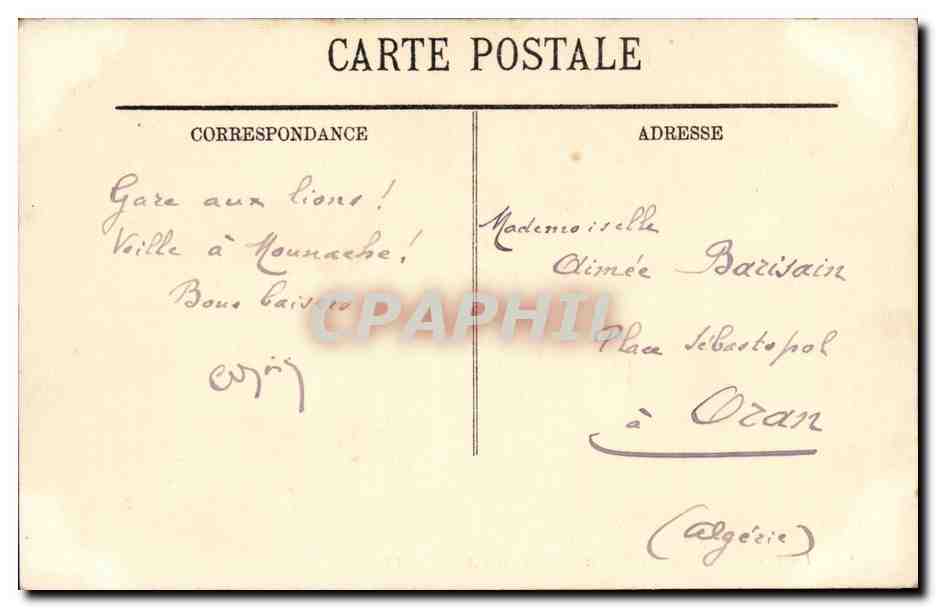 CARTE POSTALE
CORRESPONDANCE
ADRESSE
Gare aux lions !
Veille à Mounache !
Bons baisers
Mademoiselle
Aimée Barisain
Place Sébastopol
à Oran
(Algérie)
CPAPHIL